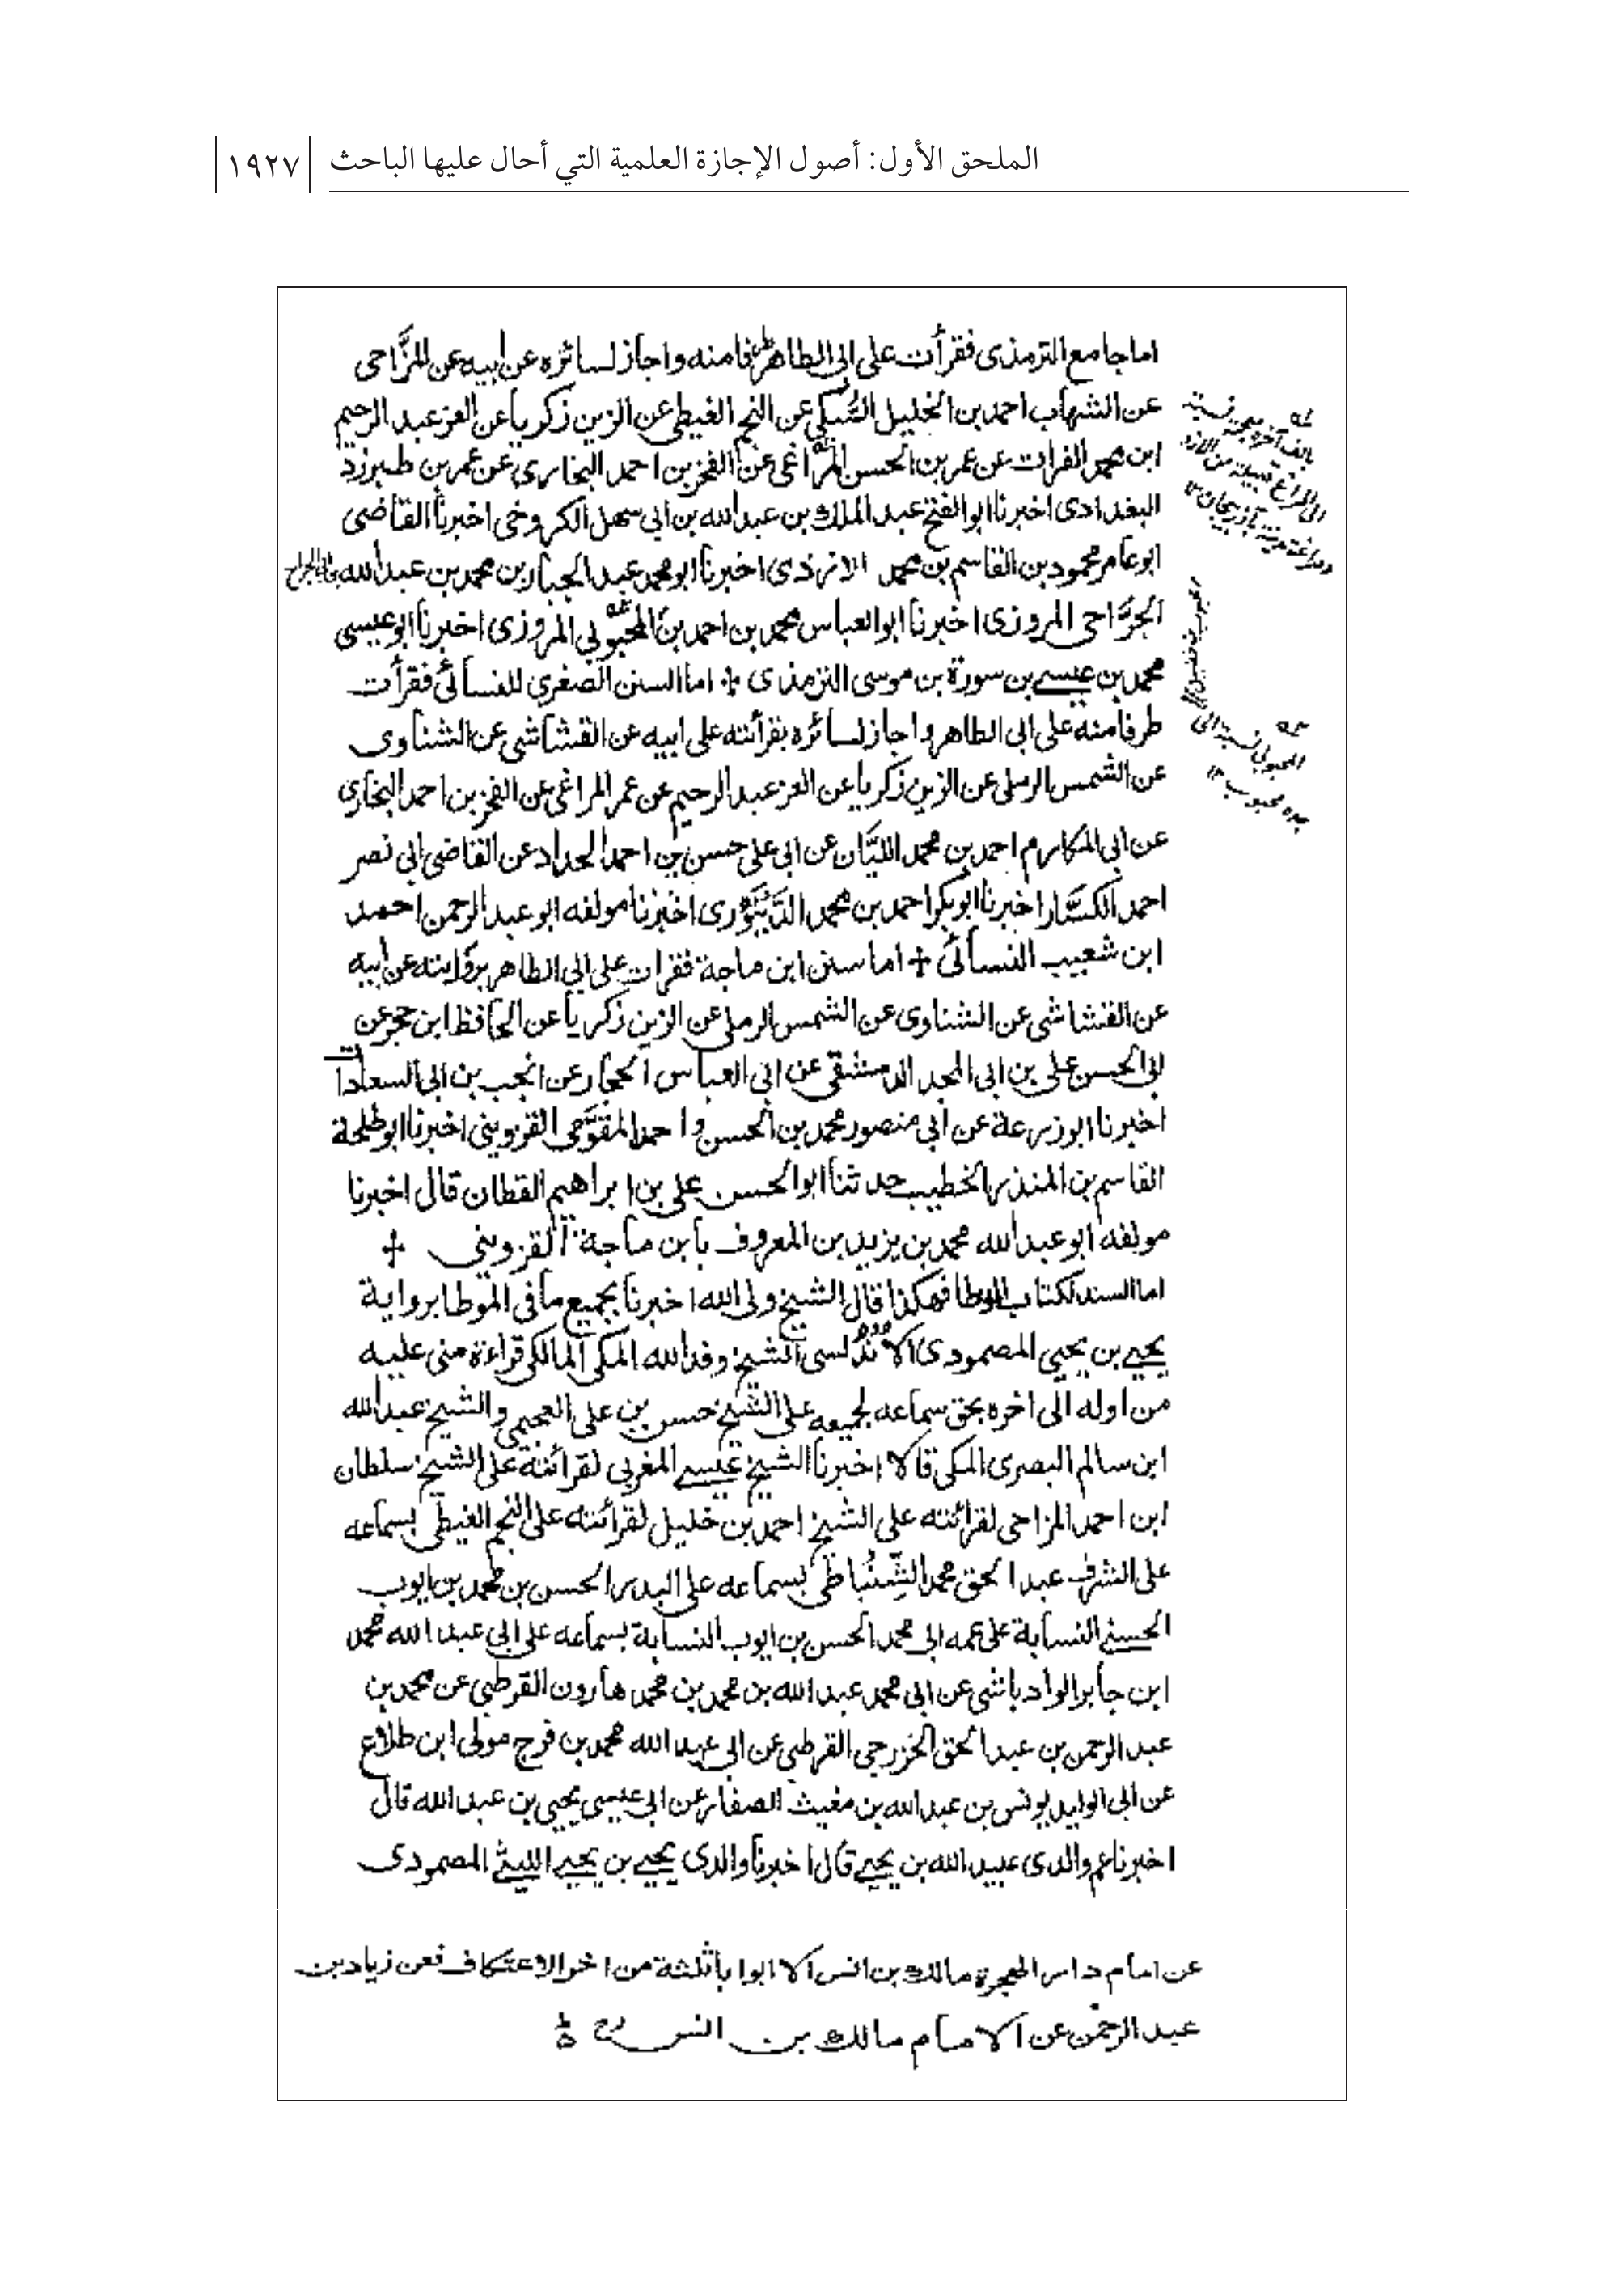 الملحق الأول: أصول الإجازة العلمية التي أحال عليها الباحث
١٩٢٧
اما جامع الترمذى فقرأت على ابى الطاهر طرفا منه واجاز لسائره عن ابيه عن المزَّاحى
عن الشهاب احمد بن الخليل السُّبكي عن النجم الغيطى عن الزين زكريا عن العز عبد الرحيم
ابن محمد الفرات عن عمر بن الحسن المراغى عن الفخر بن احمد البخارى عن عمر بن طبرزد
البغدادى اخبرنا ابو الفتح عبد الملك بن عبد الله بن ابى سهل الكروخى اخبرنا القاضى
ابو عامر محمود بن القاسم بن محمد الازدى اخبرنا ابو محمد عبد الجبار بن محمد بن عبد الله
الجرَّاحى المروزى اخبرنا ابو العباس محمد بن احمد بن المحبوبى المروزى اخبرنا ابو عيسى
محمد بن عيسى بن سورة بن موسى الترمذى + اما السنن الصغرى للنسائى فقرأت
طرفا منه على ابى الطاهر واجاز لسائره بقرأئته على ابيه عن القشاشى عن الشناوى
عن الشمس الرملى عن الزين زكريا عن العز عبد الرحيم عن عمر المراغى عن الفخر بن احمد البخارى
عن ابى المكارم احمد بن محمد اللبَّان عن ابى على حسن بن احمد الحداد عن القاضى ابى نصر
احمد الكسَّار اخبرنا ابو بكر احمد بن محمد الدِّيْنَوَرى اخبرنا مولفه ابو عبد الرحمن احمد
ابن شعيب النسائى + اما سنن ابن ماجة فقرات على ابى الطاهر بروايته عن ابيه
عن القشاشى عن الشناوى عن الشمس الرملى عن الزين زكريا عن الحافظ ابن حجر عن
ابى الحسن على بن ابى المجد الدمشقى عن ابى العباس الحجار عن انجب بن ابى السعادات
اخبرنا ابو زرعة عن ابى منصور محمد بن الحسن و احمد المقوَّمى القزوينى اخبرنا ابو طلحة
القاسم بن المنذر الخطيب حدثنا ابو الحسن على بن ابراهيم القطان قال اخبرنا
مولفه ابو عبد الله محمد بن يزيد بن المعروف بابن ماجة القزوينى +
اما السند لكتاب الموطا فهكذا قال الشيخ ولى الله اخبرنا بجميع ما فى الموطا برواية
يحيى بن يحيى المصمودى الاندلسى الشيخ وفد الله المكى المالكى قراءة منى عليه
من اوله الى اخره بحق سماعه لجميعه على الشيخ حسن بن على العجيمى والشيخ عبد الله
ابن سالم البصرى المكى قالا اخبرنا الشيخ عيسى المغربى لقرائته على الشيخ سلطان
ابن احمد المزاحى لقرائته على الشيخ احمد بن خليل لقرائته على النجم الغيطى بسماعه
على الشرف عبد الحق محمد السِّنُبَاطى بسماعه على البدر الحسن بن محمد بن ايوب
الحسنى النسابة على عمه ابى محمد الحسن بن ايوب النسابة بسماعه على ابى عبد الله محمد
ابن جابر الوادياشى عن ابى محمد عبد الله بن محمد بن محمد هارون القرطبى عن محمد بن
عبد الرحمن بن عبد الحق الخزرجى القرطبى عن ابى عبد الله محمد بن فرج مولى ابن طلاع
عن ابى الوليد يونس بن عبد الله بن مغيث الصفار عن ابى عيسى يحيى بن عبد الله قال
اخبرنا عم والدى عبيد الله بن يحيى قال اخبرنا والدى يحيى بن يحيى الليثى المصمودى
عن امام دار الهجرة مالك بن انس الا ابوابا ثلثة من اخر الاعتكاف فعن زياد بن
عبد الرحمن عن الامام مالك بن انس رح
المحبوبى نسبة الى
جده محبوب